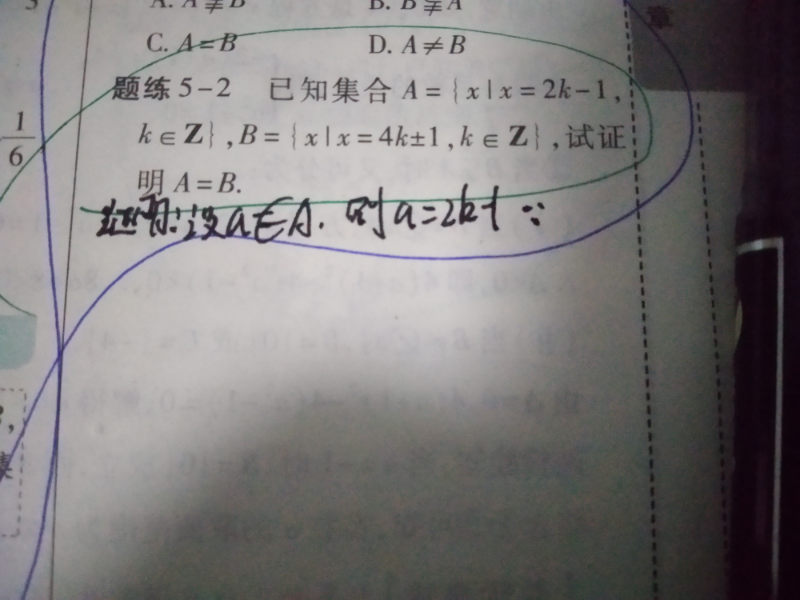 A. A⫋B B. B⫋A
C. A=B D. A≠B
题练5-2 已知集合 A={x|x=2k-1,
k∈Z},B={x|x=4k±1,k∈Z},试证
明 A=B.
证明:设a∈A. 则a=2k-1 ∵
1/6
章
集